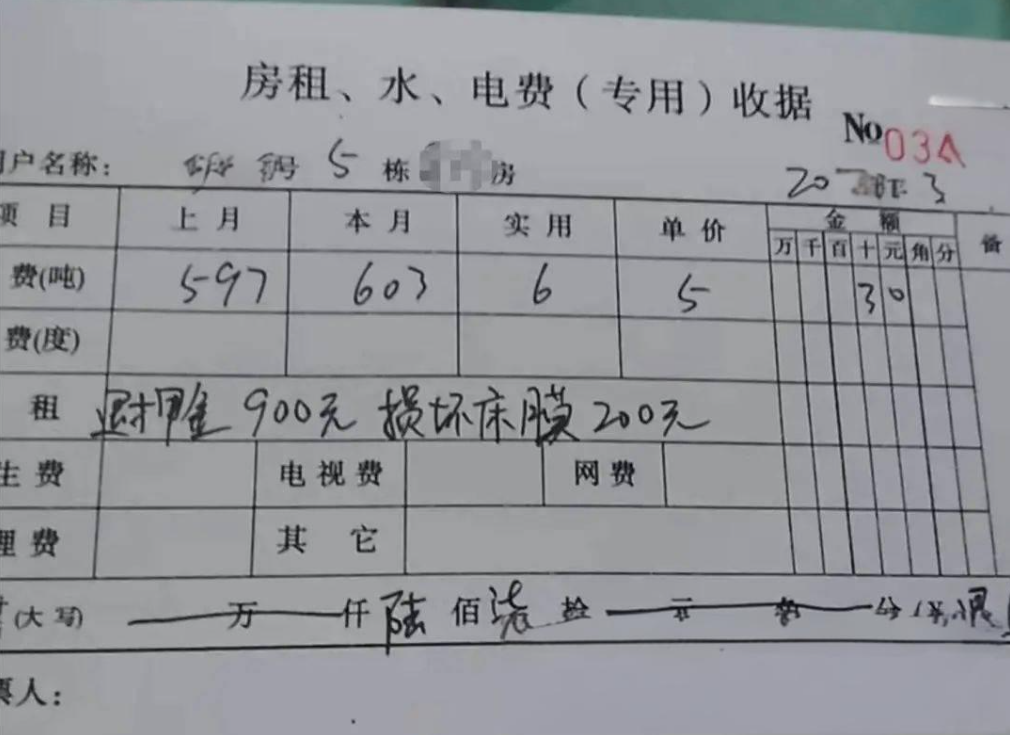 房租、水、电费(专用)收据
No 03A
户名称: 5 栋 房
20 年 3
项 目 上 月 本 月 实 用 单 价 金 额 备
万 千 百 十 元 角 分
费(吨) 597 603 6 5 3 0
费(度)
租 退押金 900元 损坏床膜 200元
生 费 电 视 费 网 费
理 费 其 它
(大写) 万 仟 陆 佰 柒 拾 元 分
票人: